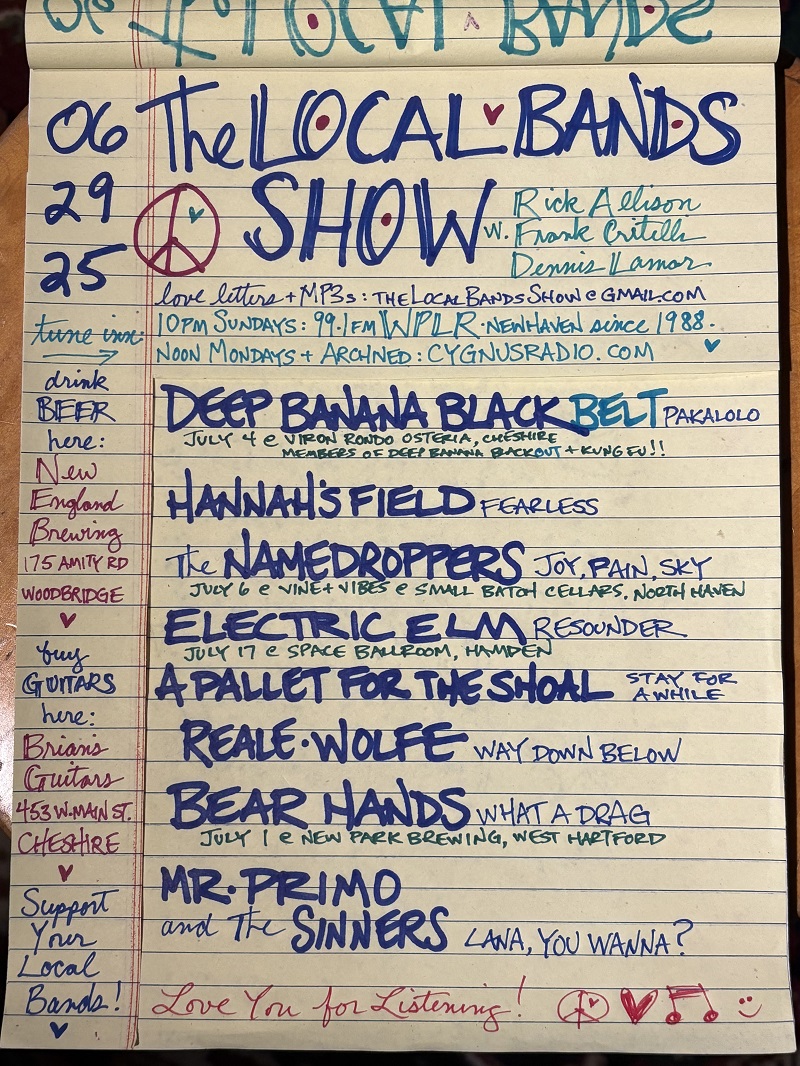 The LOCAL BANDS
SHOW
w. Rick Allison
Frank Critelli
Dennis Lamar
06
29
25
love letters + MP3s: THELOCALBANDSSHOW@GMAIL.COM
tune inn:
10PM SUNDAYS: 99.1FM WPLR·NEWHAVEN since 1988.
NOON MONDAYS + ARCHIVED: CYGNUSRADIO.COM
drink
BEER
here:
New
England
Brewing
175 AMITY RD
WOODBRIDGE
buy
GUITARS
here:
Brian's
Guitars
453 W. MAIN ST.
CHESHIRE
Support
Your
Local
Bands!
DEEP BANANA BLACK BELT PAKALOLO
JULY 4 @ VIRON RONDO OSTERIA, CHESHIRE
MEMBERS OF DEEP BANANA BLACKOUT + KUNG FU!!
HANNAH'S FIELD FEARLESS
The NAMEDROPPERS JOY, PAIN, SKY
JULY 6 @ VINE + VIBES @ SMALL BATCH CELLARS, NORTH HAVEN
ELECTRIC ELM RESOUNDER
JULY 17 @ SPACE BALLROOM, HAMDEN
A PALLET FOR THE SHOAL STAY FOR
A WHILE
REALE·WOLFE WAY DOWN BELOW
BEAR HANDS WHAT A DRAG
JULY 1 @ NEW PARK BREWING, WEST HARTFORD
MR. PRIMO
and The SINNERS LANA, YOU WANNA?
Love You for Listening!